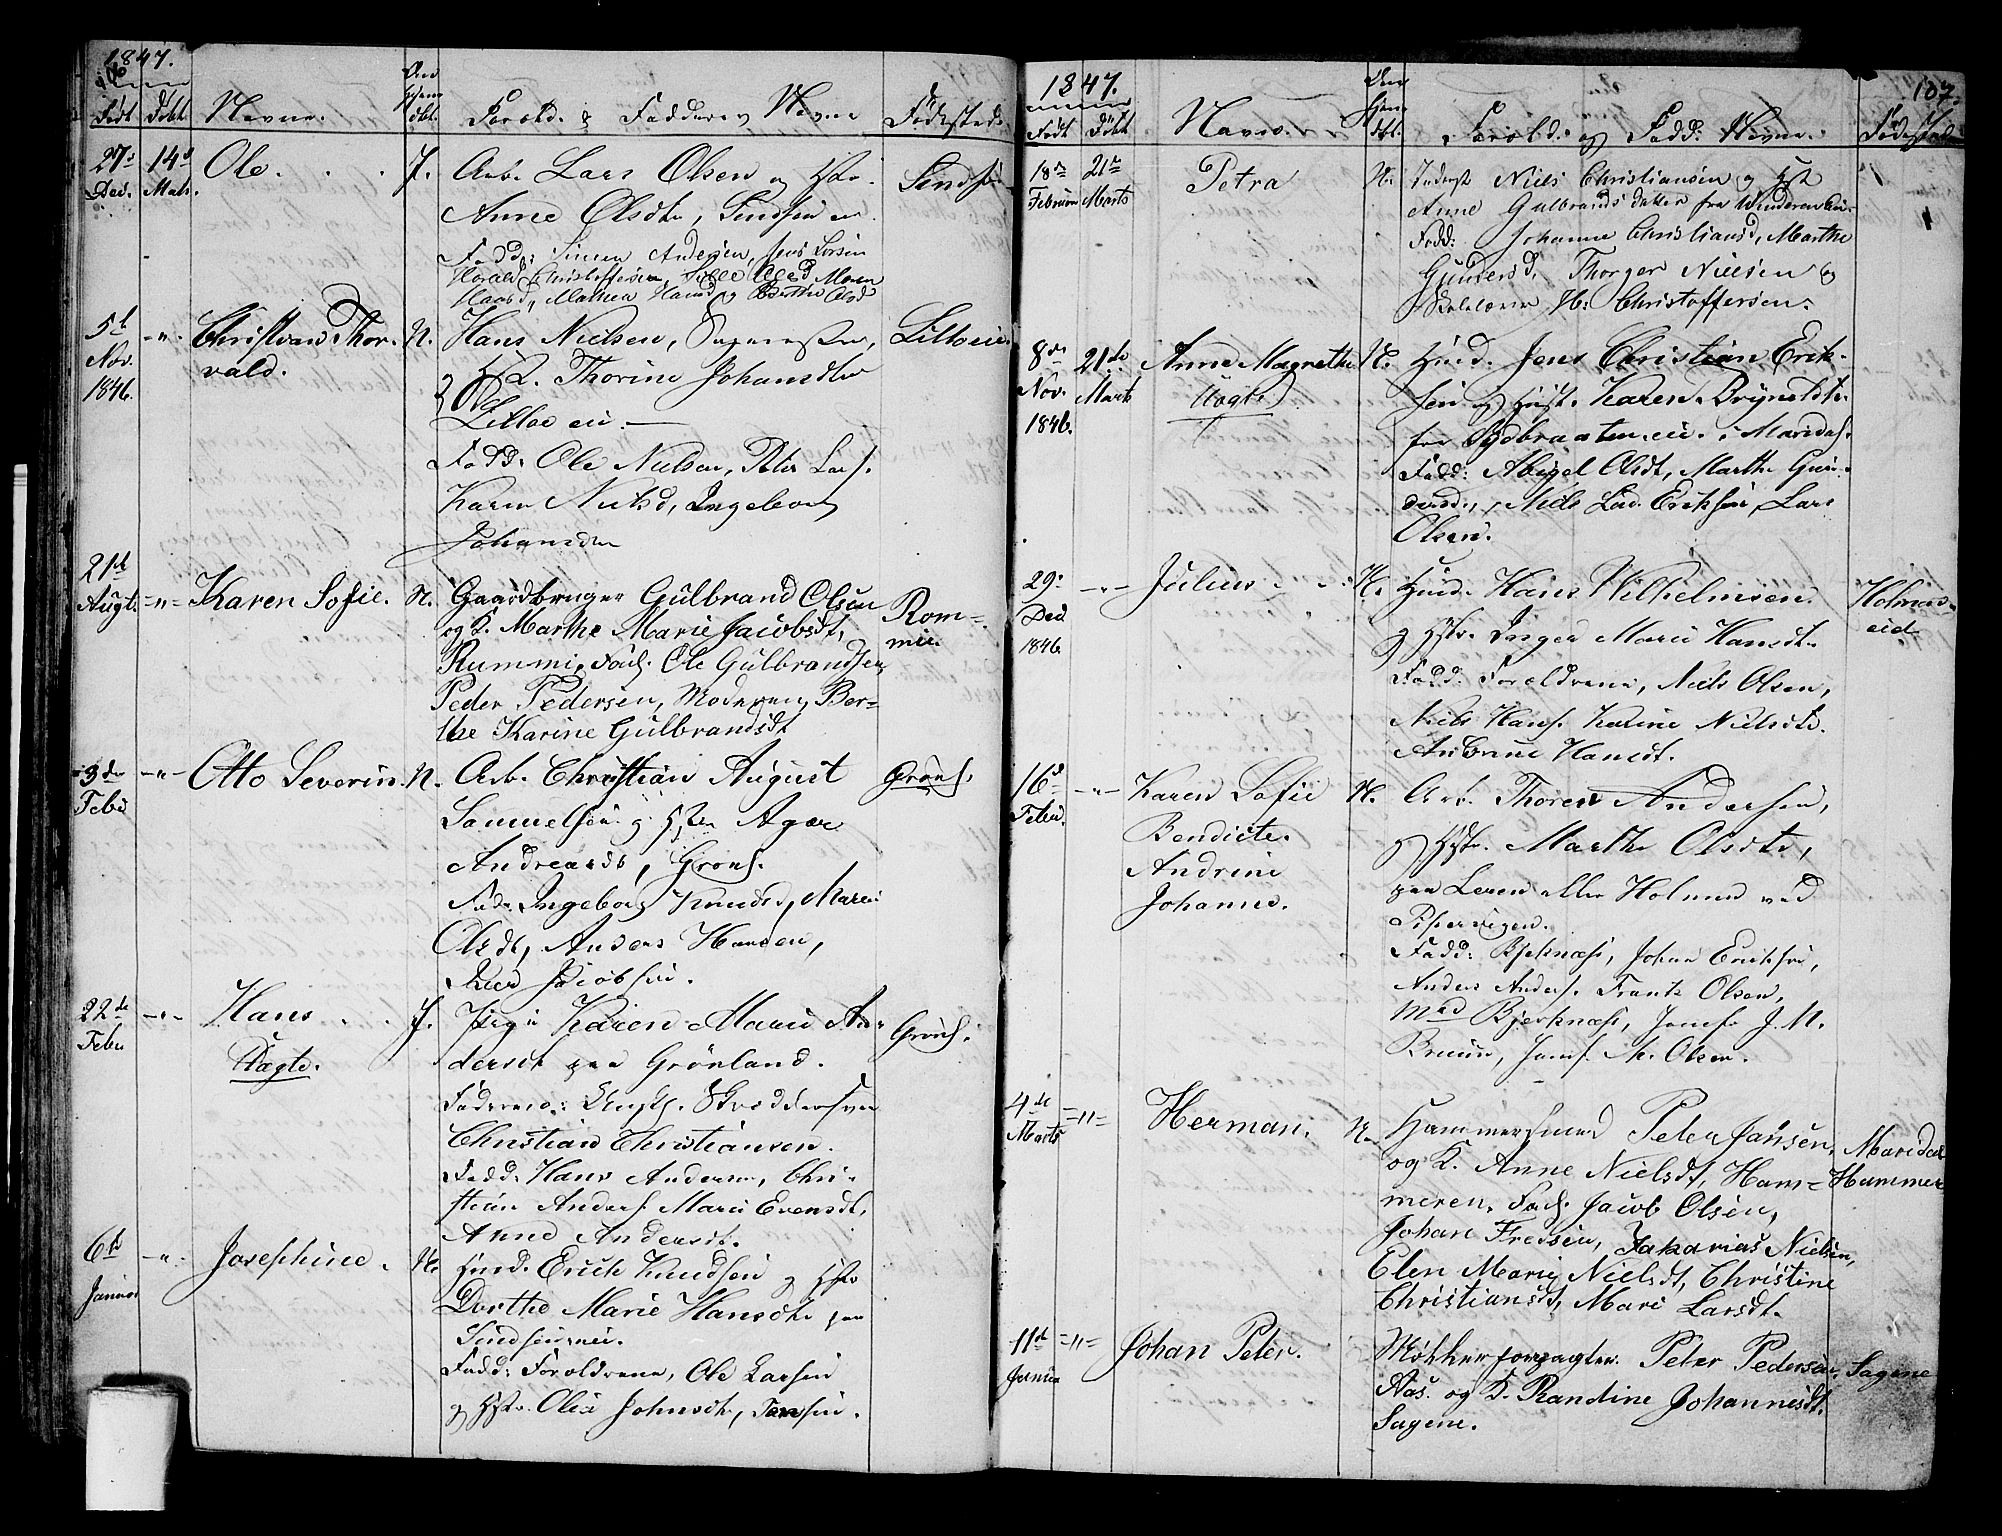 1847.
Født Døbt Navne. Foræld. & Faddernes Navne Fødested
27de Dec. 14de Mats. Ole. J. Arb. Lars Olsen og Hst.
Anne Olsdtr,
Fadd: Simen Andersen, Jens Larsen
Harald Christoffersen,
5te Nov. 1846. -"- Christian Thorvald. N. Hans Nielsen,
og K. Thorine Johansdtr
Lilloeie.
Fadd: Ole Nielsen, Peter Lars.
Karen Nielsd, Ingeborg
Johansdtr
Lilloeie.
21de Augt. -"- Karen Sofie. N. Gaardbruger Gulbrand Olsen
og K. Marthe Marie Jacobsdt,
Rummi, Fad. Ole Gulbrandsen,
Peder Pedersen, Moderen, Ber-
the Karine Gulbrandsdt
Rom-
mi.
3de Febr -"- Otto Severin. N. Arb. Christian August
Samuelsen og Hstr Agar
Andreasdt, Grønl.
Fad. Ingeborg Knudsd, Maria
Olsdt, Anders Hansen,
Jacobsen.
Grønl.
22de Febr -"- Hans Uægte. J. Pige Karen Marie An-
dersdt paa Grønland.
Christian Christiansen.
Fadd: Hans Andersen, Chri-
stian Anders. Marie Evensdt,
Anne Andersdt.
Grønl.
6te Januar -"- Josephine. N. Huusd. Erick Knudsen og Hstr
Dorthe Marie Hansdtr paa
Fadd: Foreldrene, Ole Larsen
og Hstr. Olea Johnsdt,
1847. 107.
Født Døbt Navne. Foræld. og Fadd: Navne. Fødested
18de Februar 21de Marts Petra N. Inderst Niels Christiansen og Hst
Anne Gulbrandsdatter fra Winderen Eie.
Fadd: Johanne Christiansd, Marthe
Gundersd, Thorger Nielsen og
H. Christoffersen.
8de Nov. 1846. 21de Marts Anne Magrethe Uægte N. Huusd. Jens Christian Erik-
sen og Hust. Karen Brynildt.
fra Sydbraatenei. i Maridal.
Fadd: Abigel Olsdt, Marthe Gun-
dersd., Niels Eriksen, Lars
Olsen.
29. Dec 1846. -"- Julius N. Huusd. Hans Wilhelmsen.
og Hstr. Inger Marie Hansdt.
Fadd: Foreldrene, Niels Olsen,
Niels Hans. Karine Nielsdt.
Hansdt.
Holmens-
eid
16de Febru. -"- Karen Sofie
Bendicte.
Andrine
Johanne.
N. Arb. Thoren Andersen,
og Hstr. Marthe Olsdtr,
paa Leren eller Holmen ved
Pipervigen.
Fadd: Bjerknæss, Johan Eriksen,
Anders Anders. Frants Olsen,
Mad Bjerknæss, Jomfr J. M.
Bruun, Jomf. M. Olsen.
4de Marts ="= Herman. N. Hammersmed Peter Jansen,
og K. Anne Nielsdt, Ham=
meren. Fad. Jacob Olsen,
Johan Fredsen, Zakarias Nielsen,
Elen Marie Nielsdt, Christine
Christiansdt, Mari Larsdt.
Maridal
Hammer
11de Januar ="= Johan Peter. Møllerforpagter. Peter Pedersen
Aas. og K. Randine Johannesdt.
Sagene.
Sagene